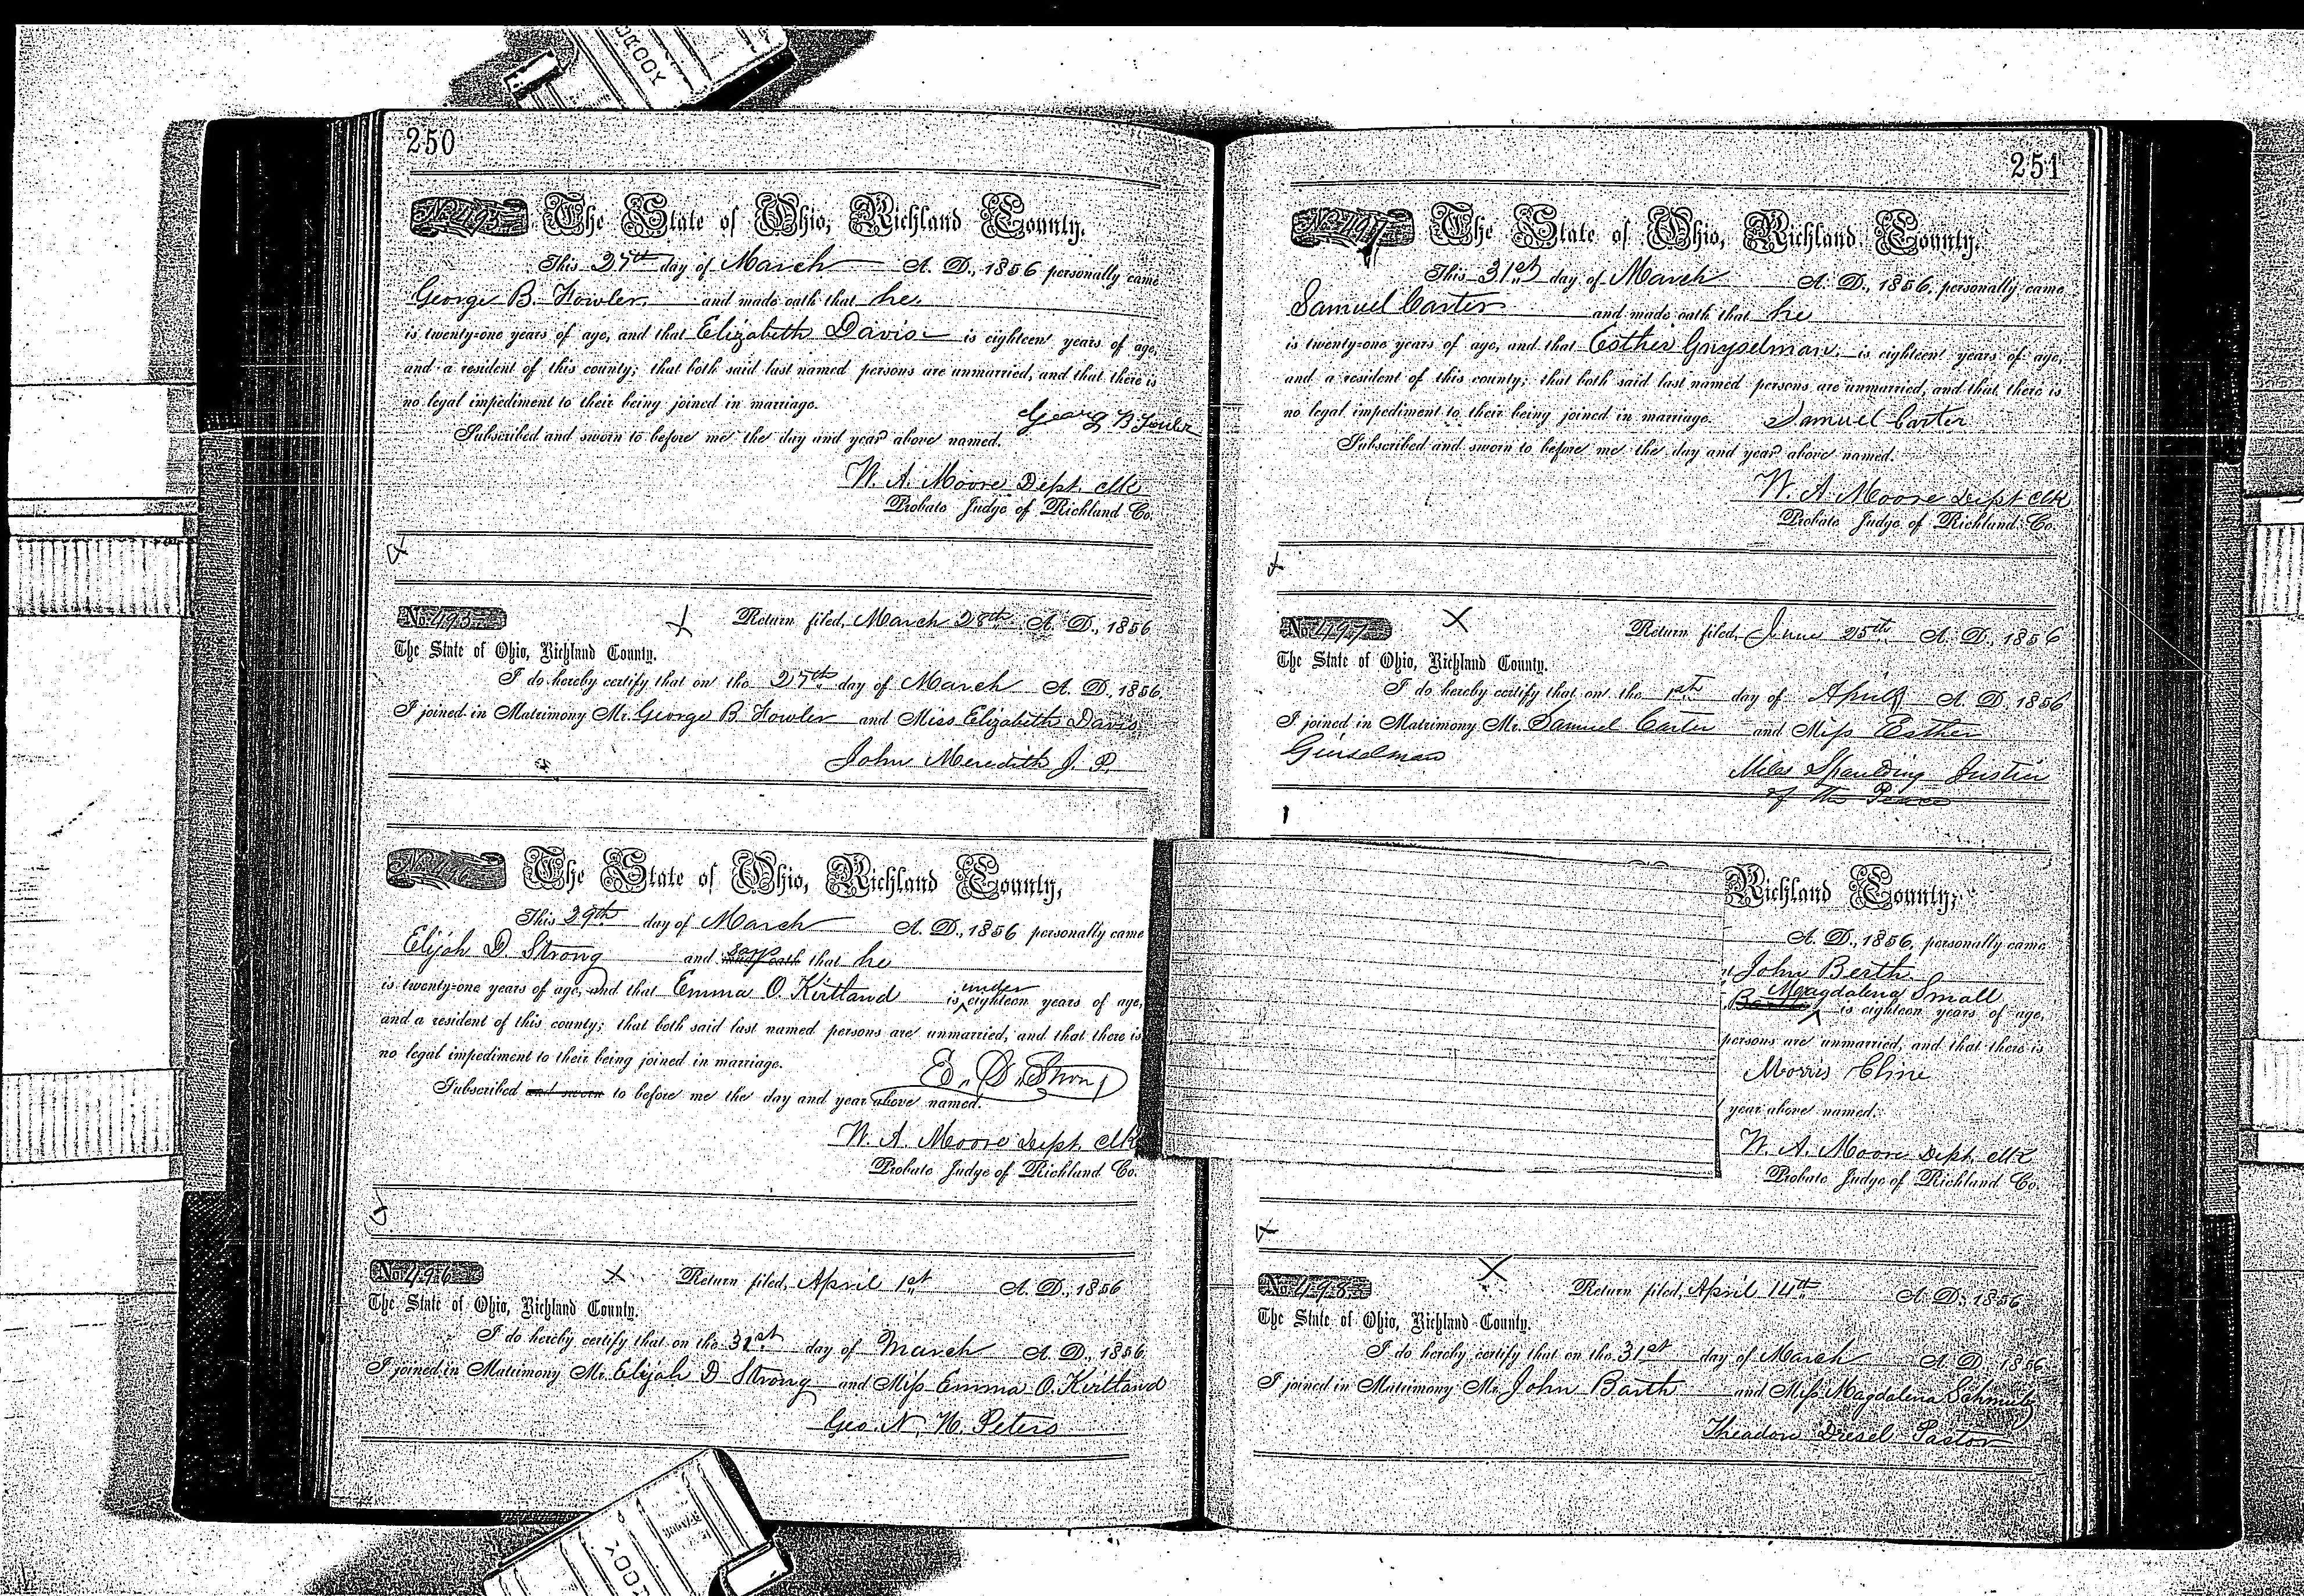 250
No. 495 The State of Ohio, Richland County.
This 27th day of March A. D., 1856 personally came
George B. Fowler and made oath that he
is twenty-one years of age, and that Elizabeth Davis is eighteen years of age,
and a resident of this county; that both said last named persons are unmarried, and that there is
no legal impediment to their being joined in marriage.
Georg B Fouler
Subscribed and sworn to before me the day and year above named.
W. A. Moore Dept. Clk
Probate Judge of Richland Co.
No. 495 Return filed, March 28th A. D., 1856
The State of Ohio, Richland County.
I do hereby certify that on the 27th day of March A. D., 1856
I joined in Matrimony Mr. George B. Fowler and Miss Elizabeth Davis
John Meredith J. P.
No. 496 The State of Ohio, Richland County,
This 29th day of March A. D., 1856 personally came
Elijah D. Strong and says that he
is twenty-one years of age, and that Emma O. Kirtland is under eighteen years of age,
and a resident of this county; that both said last named persons are unmarried, and that there is
no legal impediment to their being joined in marriage.
E. D. Strong
Subscribed and sworn to before me the day and year above named.
W. A. Moore Dept. Clk
Probate Judge of Richland Co.
No. 496 Return filed, April 1st A. D., 1856
The State of Ohio, Richland County.
I do hereby certify that on the 31st day of March A. D., 1856
I joined in Matrimony Mr. Elijah D Strong and Miss Emma O. Kirtland
Geo. N. H. Peters
251
No. 497 The State of Ohio, Richland County.
This 31st day of March A. D., 1856, personally came
Samuel Carter and made oath that he
is twenty-one years of age, and that Esther Gnyselman is eighteen years of age,
and a resident of this county; that both said last named persons are unmarried, and that there is
no legal impediment to their being joined in marriage. Samuel Carter
Subscribed and sworn to before me the day and year above named.
W. A Moore Dept Clk
Probate Judge of Richland Co.
No. 497 Return filed, June 25th A. D., 1856
The State of Ohio, Richland County.
I do hereby certify that on the 1st day of April A. D., 1856
I joined in Matrimony Mr. Samuel Carter and Miss Esther
Geiselman
Miles Spaulding Justice
of the Peace
Richland County,
A. D., 1856, personally came
John Berth
Magdalena Small
is eighteen years of age,
persons are unmarried, and that there is
Morris Cline
year above named.
W. A. Moore Dept. Clk
Probate Judge of Richland Co.
No. 498 Return filed, April 14th A. D., 1856
The State of Ohio, Richland County.
I do hereby certify that on the 31st day of March A. D. 1856
I joined in Matrimony Mr. John Barth and Miss Magdalena Schmultz
Theadore Diesel Pastor